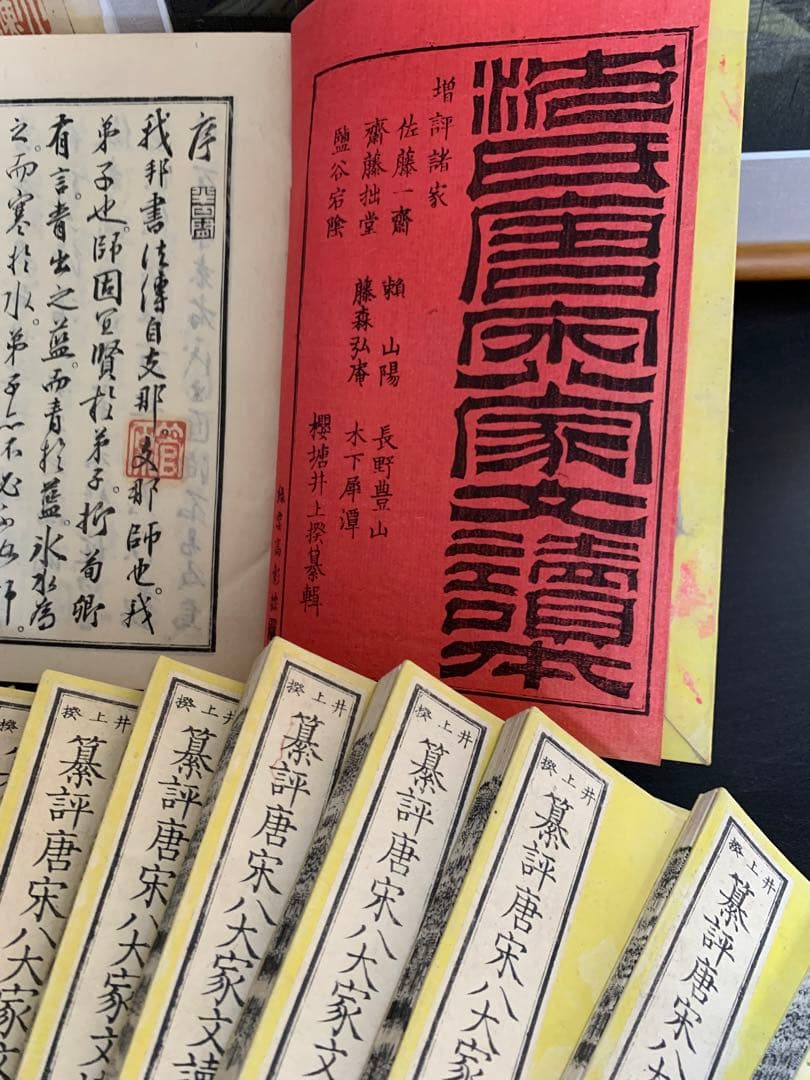 沈氏唐宋八家文讀本
增評諸家
佐藤一齋 賴山陽 長野豊山
齋藤拙堂 藤森弘庵 木下犀潭
鹽谷宕陰
櫻塘井上揆纂輯
序
我邦書法傳自支那。支那師也。我
弟子也。師固宜賢於弟子。抑荀卿
有言。青出之藍。而青於藍。冰水為
之。而寒於水。弟子亦不必不如師。
井上揆
纂評唐宋八
井上揆
纂評唐宋八大家文
井上揆
纂評唐宋八大家文
井上揆
纂評唐宋八大家文
井上揆
纂評唐宋八大家文讀
井上揆
纂評唐宋八大家文
揆
八大家文